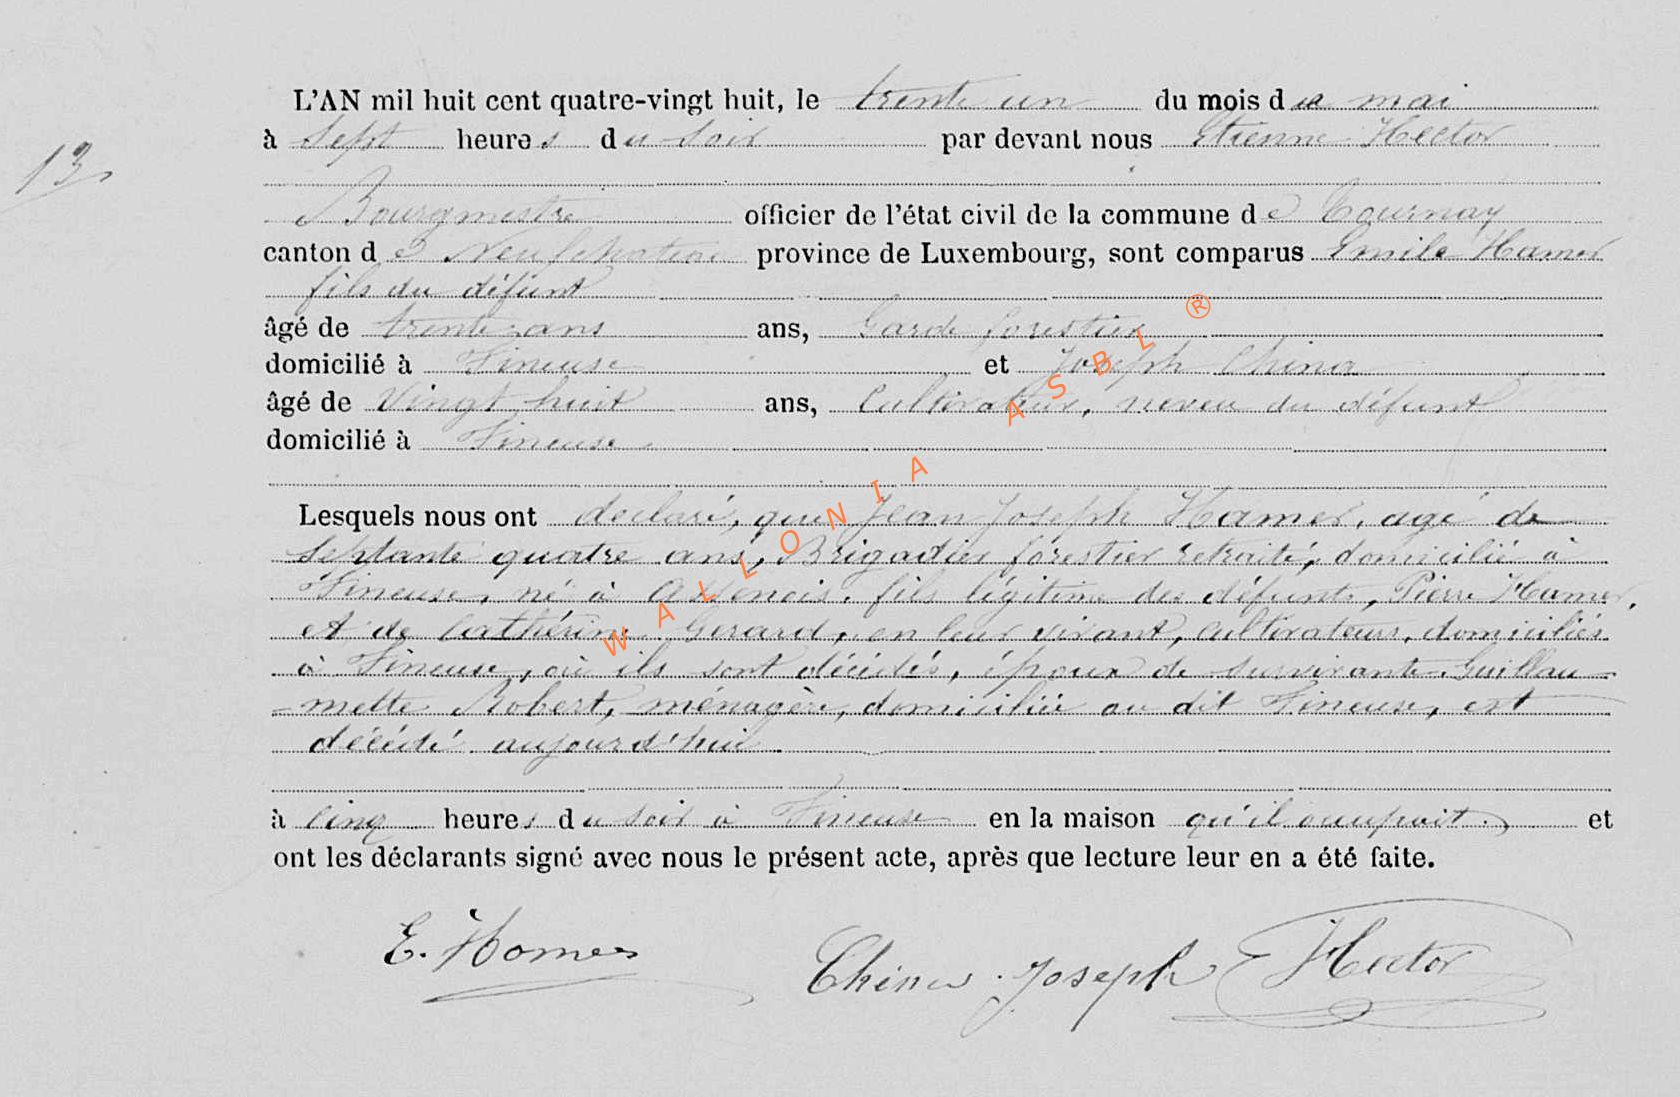 L'AN mil huit cent quatre-vingt huit, le trente un du mois de mai
13 à Sept heures du soir par devant nous Etienne Hector
Bourgmestre officier de l'état civil de la commune de Tournay
canton de Neufchateau province de Luxembourg, sont comparus Emile Hamer
fils du défunt
âgé de trente ans ans, Garde forestier
domicilié à Fineuse et Joseph China
âgé de Vingt huit ans, Cultivateur, neveu du défunt
domicilié à Fineuse
Lesquels nous ont déclaré, que Jean Joseph Hamer, agé de
septante quatre ans, Brigadier forestier retraité, domicilié à
Fineuse, né à Assenois, fils légitime des défunts, Pierre Hamer,
et de Cathérine Gerard, en leur vivant, cultivateurs, domiciliés
à Fineuse, où ils sont décédés, époux de survivante Guillau=
=mette Robert, ménagère, domiciliée au dit Fineuse, est
décédé aujourd'hui
à cinq heures du soir à Fineuse en la maison qu'il occupait, et
ont les déclarants signé avec nous le présent acte, après que lecture leur en a été faite.
E. Hamer Joseph Hector
WALLONIA ASBL ®